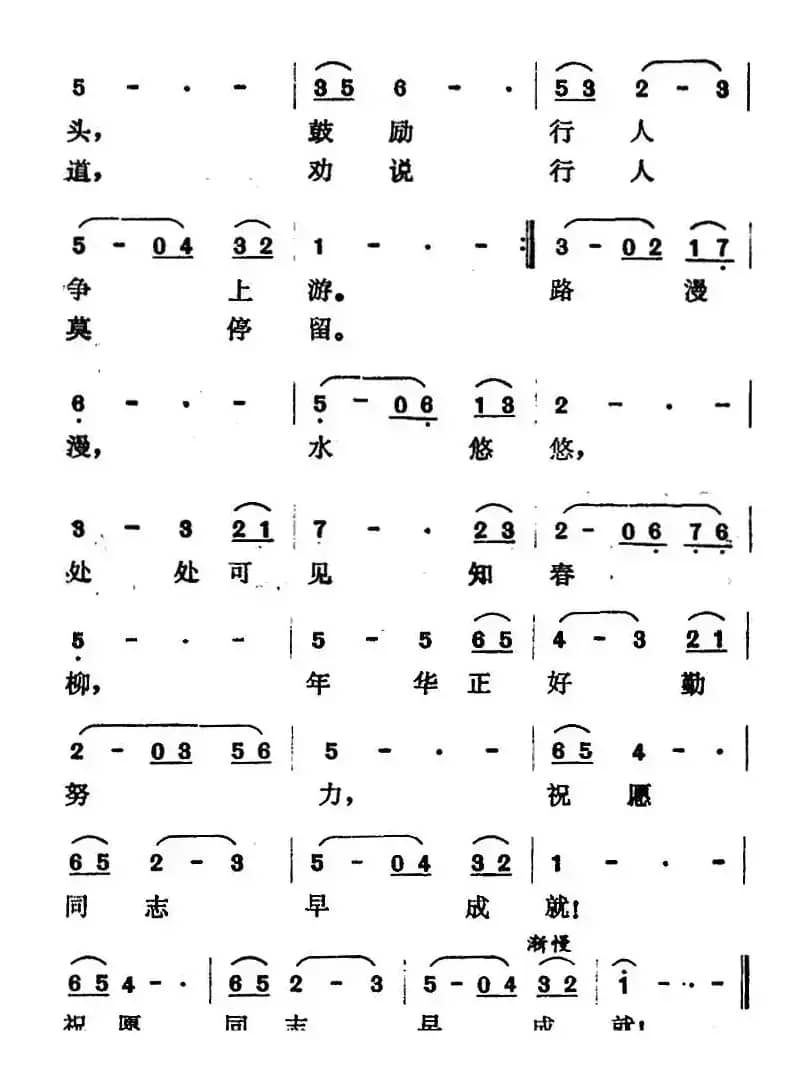 5 - · - | 35 6 - · | 53 2 - 3 |
头， 鼓 励 行 人
道， 劝 说 行 人
5 - 04 32 | 1 - · - :| 3 - 02 17
争 上 游。 路 漫
莫 停 留。
6 - · - | 5 - 06 13 | 2 - · - |
漫， 水 悠 悠，
3 - 3 21 | 7 - · 23 | 2 - 06 76
处 处 可 见 知 春
5 - · - | 5 - 5 65 | 4 - 3 21 |
柳， 年 华 正 好 勤
2 - 03 56 | 5 - · - | 65 4 - · |
努 力， 祝 愿
65 2 - 3 | 5 - 04 32 | 1 - · - |
同 志 早 成 就！
渐慢
65 4 - · | 65 2 - 3 | 5 - 04 32 | 1 - · - ‖
祝 愿 同 志 早 成 就！